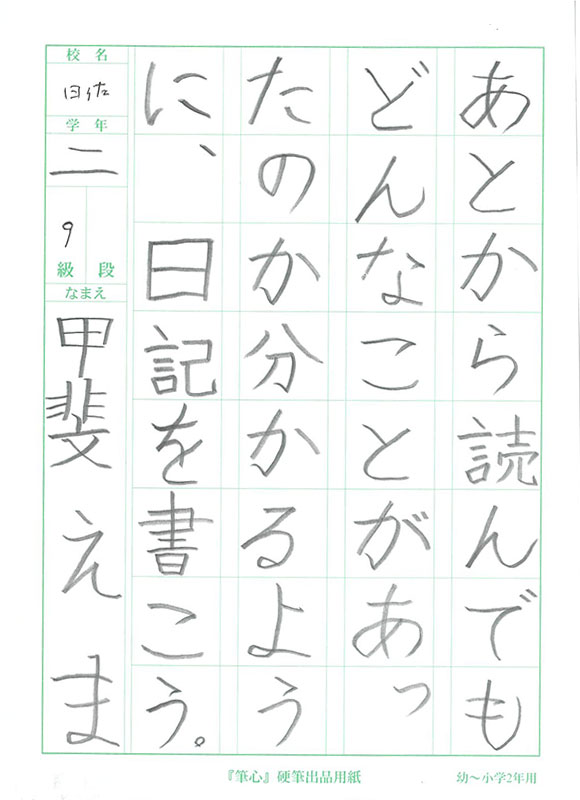 あとから読んでも
どんなことがあっ
たのか分かるよう
に、日記を書こう。
校名
日佐
学年
二
9
級 段
なまえ
甲斐えま
『筆心』硬筆出品用紙
幼〜小学2年用